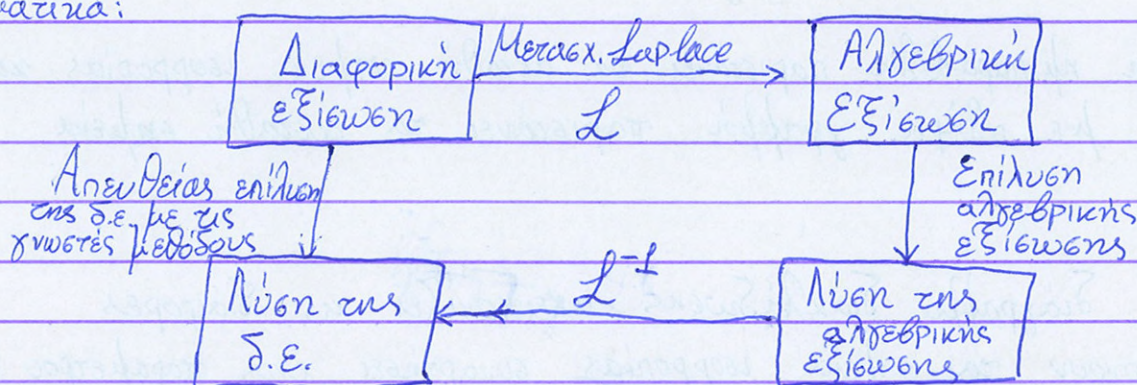 Διαφορική
εξίσωση
Μετασχ. Laplace
ℒ
Αλγεβρική
Εξίσωση
Απευθείας επίλυση
της δ.ε. με τις
γνωστές μεθόδους
Επίλυση
αλγεβρικής
εξίσωσης
Λύση της
δ.ε.
ℒ⁻¹
Λύση της
αλγεβρικής
εξίσωσης